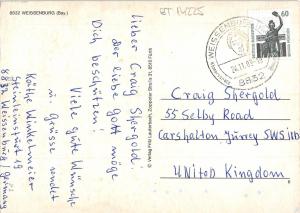 8832 WEISSENBURG (Bay.)
BT 14225
60
WEISSENBURG
8832
Lieber Craig Shergold.
Der liebe Gott möge
Dich beschützen!
Viele gute Wünsche
u. Grüsse sendet
Käthe Winkelmeier
Steinleinstr 19
8832 Weissenburg/Germany
© Verlag
8510 Fürth
Craig Shergold
55 Selby Road
Carshalton Surrey SW5 1LD
United Kingdom